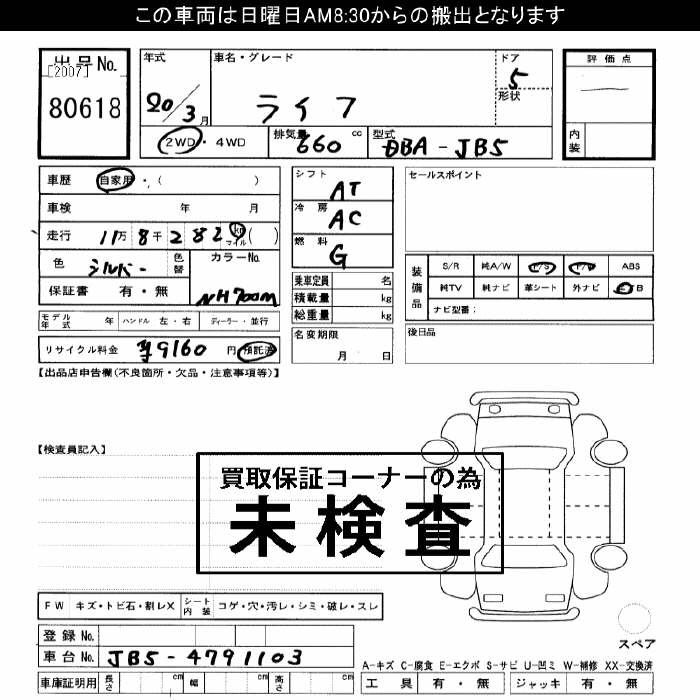 この車両は日曜日AM8:30からの搬出となります
出品No.
[2007]
80618
年式
20/3月
車名・グレード
ライフ
ドア
5
形状
評価点
内装
2WD・4WD
排気量
660 cc
型式
DBA-JB5
車歴 自家用・( )
車検 年 月
走行 11万 8千 2 8 2 km マイル ( )
色 シルバー 色替
カラーNo.
NH700M
保証書 有・無
シフト
AT
冷房
AC
燃料
G
乗車定員 名
積載量 kg
総重量 kg
セールスポイント
装備品
S/R 純A/W P/S P/W ABS
純TV 純ナビ 革シート 外ナビ エアB
ナビ型番:
モデル年式 年 ハンドル 左・右 ディーラー・並行
リサイクル料金 ¥9160 円 預託済
名変期限
月 日
後日品
【出品店申告欄(不良箇所・欠品・注意事項等)】
【検査員記入】
買取保証コーナーの為
未検査
FW キズ・トビ石・割レX シート内装 コゲ・穴・汚レ・シミ・破レ・スレ
登録No.
車台No. JB5-4791103
車庫証明用 長さ cm 幅 cm 高さ cm
スペア
A-キズ C-腐食 E-エクボ S-サビ U-凹ミ W-補修 XX-交換済
工具 有・無 ジャッキ 有・無